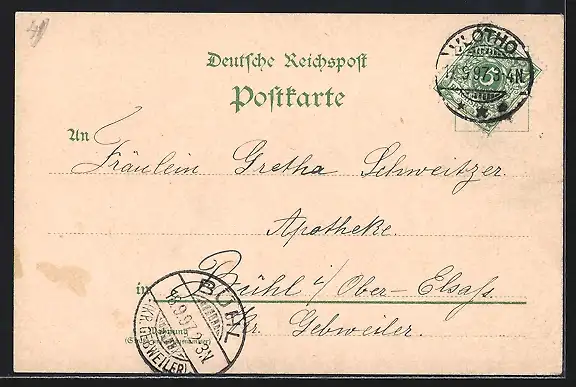 4
VLOTHO
17.9.97.3-4N.
Deutsche Reichspost
Postkarte
An
Fräulein Gretha Schweitzer.
Apotheke.
in Bühl i/ Ober-Elsaß.
Kr. Gebweiler.
BÜHL
18.9.97.2-3N
(KR. GEBWEILER)
Wohnung